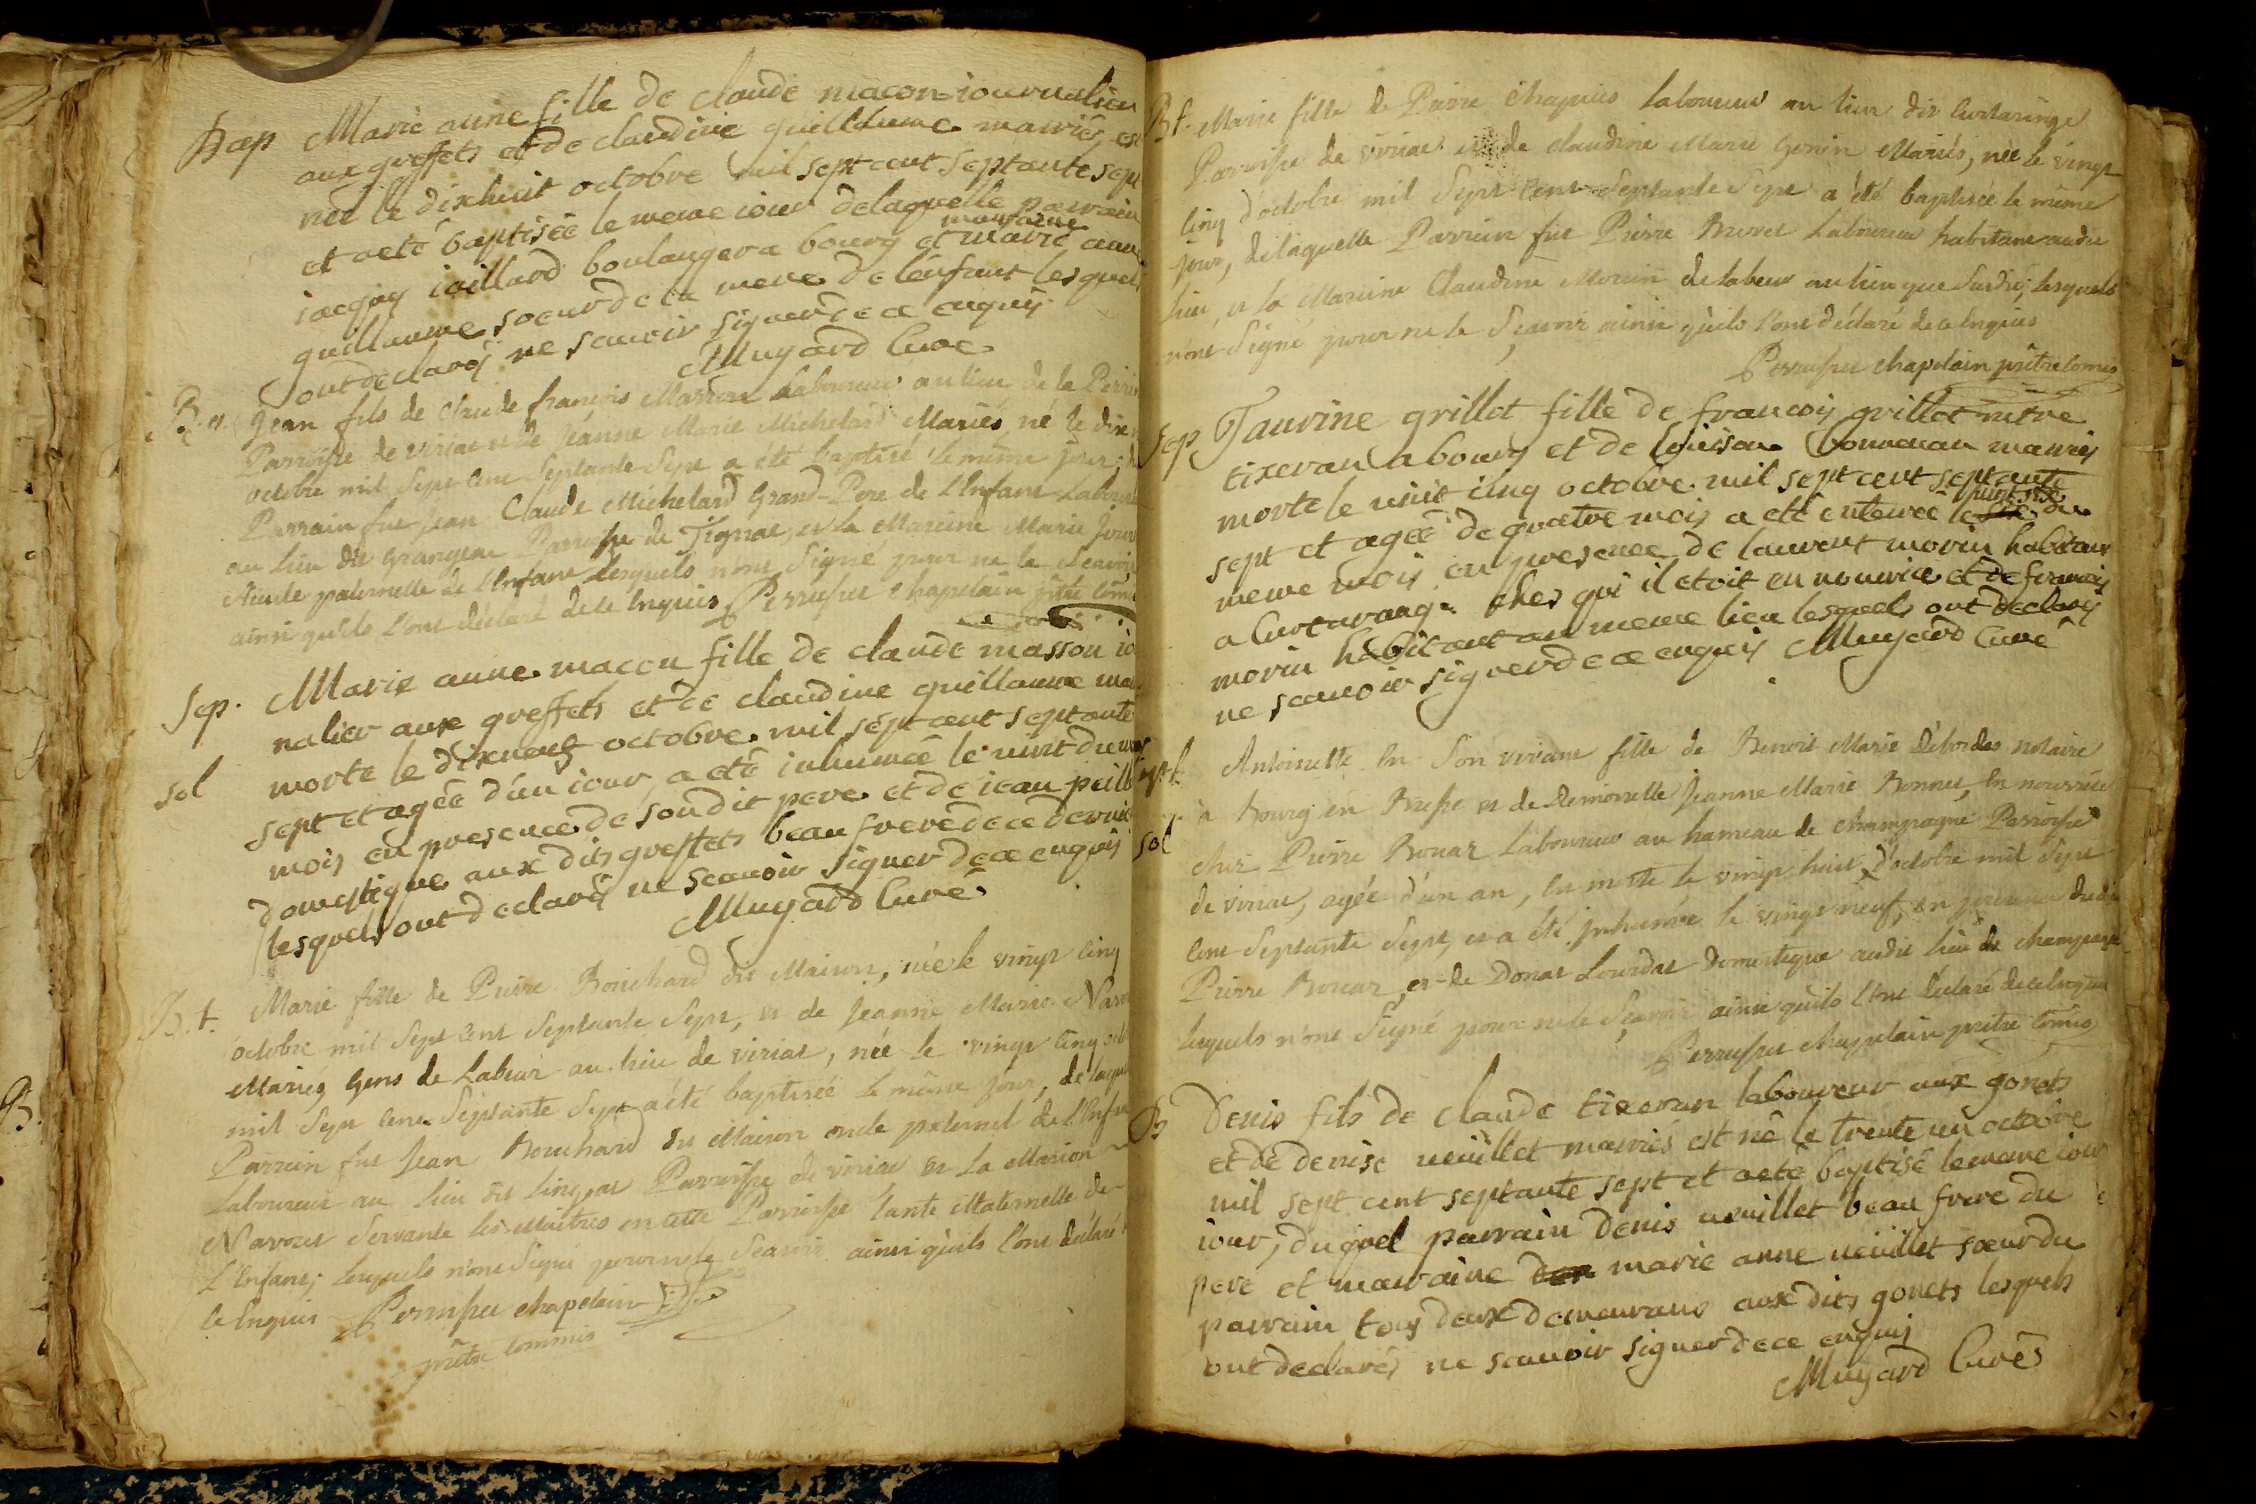 Bap Marie anne fille de claude macon iournalier
aux greffets et de claudine guillaume mariés est
neé le dixhuit octobre mil sept cent septante sept
et aeté baptiseé le meme iour delaquelle parrain
marraine
iacquy iaillard boulanger a bourg et marie anne
guillaume soeur de la mere de lénfant lesquels
ont declarés ne scavoir signer de ce enquis
Mugard Curé
B. Jean fils de Claude françois Masson Laboureur au lieu de la
Parroisse de viriat et de Jeanne Marie Michelard Mariés né le
octobre mil Sept Cent Septante Sept a été baptisé le même jour;
Parrain fut Jean Claude Michelard Grand-Pere de l'Enfant Laboureur
au lieu dit Grangeau Parroisse de Jignat, et la Maraine Marie
paternelle de l'Enfant lesquels n'ont Signé pour ne le Scavoir
ainsi qu'ils l'ont déclaré de ce Enquis Perruset Chapelain prêtre Comis
Sep. Marie anne macon fille de claude masson io
nalier aux greffets et de claudine guillaume
sol morte le dixneuf octobre mil sept cent septante
sept et ageé d'un iour, a eté inhumeé le vint du
mois en presence de sondit pere et de iean
domestique aux dits greffets beau frere de ce dernier
lesquels ont declarés ne scavoir signer de ce enquis
Mugard Curé
B.t. Marie fille de Pierre Bouchard dit Maison, née le vingt cinq
octobre mil Sept Cent Septante Sept, et de Jeanne Marie
Mariés Gens de Labeur au lieu de viriat, née le vingt Cinq
mil Sept Cent Septante Sept a été baptisée le même jour, de laquelle
Parrain fut Jean Bouchard dit Maison oncle paternel de l'Enfant
Laboureur au lieu dit Parroisse de viriat et la Marion
Navoret Servante en cette Parroisse tante Maternelle de
L'Enfant; lesquels n'ont Signé pour ne le Scavoir ainsi qu'ils l'ont déclaré
ce Enquis Perruset Chapelain
prêtre Commis
B.t. Marie fille de Pierre Chapuis Laboureur au lieu dit Curtaringe
Parroisse de viriat et de Claudine Marie Gonin Mariés, née le vingt
Cinq d'octobre mil Sept Cent Septante Sept a été baptisée le même
jour, de laquelle Parrain fut Pierre Laboureur habitant audit
lieu, et la Maraine Claudine Morin de labeur au lieu que Susdit; lesquels
n'ont Signé pour ne le Scavoir ainsi qu'ils l'ont déclaré de ce Enquis
Perruset chapelain prêtre Comis
Sep Taurine grillot fille de francois grillot mtre
tixeran a bourg et de louison mariés
morte le vint cinq octobre mil sept cent septante
vint six
sept et ageé de quatre mois a eté enterreé le du
meme mois en presence de laurent morin habitant
a Curtarange ches qui il etoit en nourice et de francois
morin habitant au meme lieu lesquels ont declarés
ne scavoir signer de ce enquis Mugard Curé
Antoinette En Son vivant fille de Benoit Marie Débordes notaire
à Bourg en Bresse et de Demoiselle Jeanne Marie Bonnet, En nourrice
sol chéz Pierre Bouar Laboureur au hameau de Champagne Parroisse
de viriat, agée d'un an, Est morte le vingt huit d'octobre mil Sept
Cent Septante Sept, et a été Inhumée le vingt neuf, en présence dudit
Pierre Bouar, et de Donat Lourdat Domestique audit lieu de Champagne
lesquels n'ont Signé pour ne le Scavoir ainsi qu'ils l'ont déclaré de ce Enquis
Perruset chapelain prêtre Comis
B Denis fils de claude tixeran laboureur aux gonets
et de denise veüillet mariés est né le trente un octobre
mil sept cent septante sept et aeté baptisé le meme iour
iour, duquel parrain denis veuillet beau frere du
pere et marraine marie anne veüillet soeur du
parrain tous deux demeurans aux dits gonets lesquels
ont declarés ne scavoir signer de ce enquis
Mugard Curé